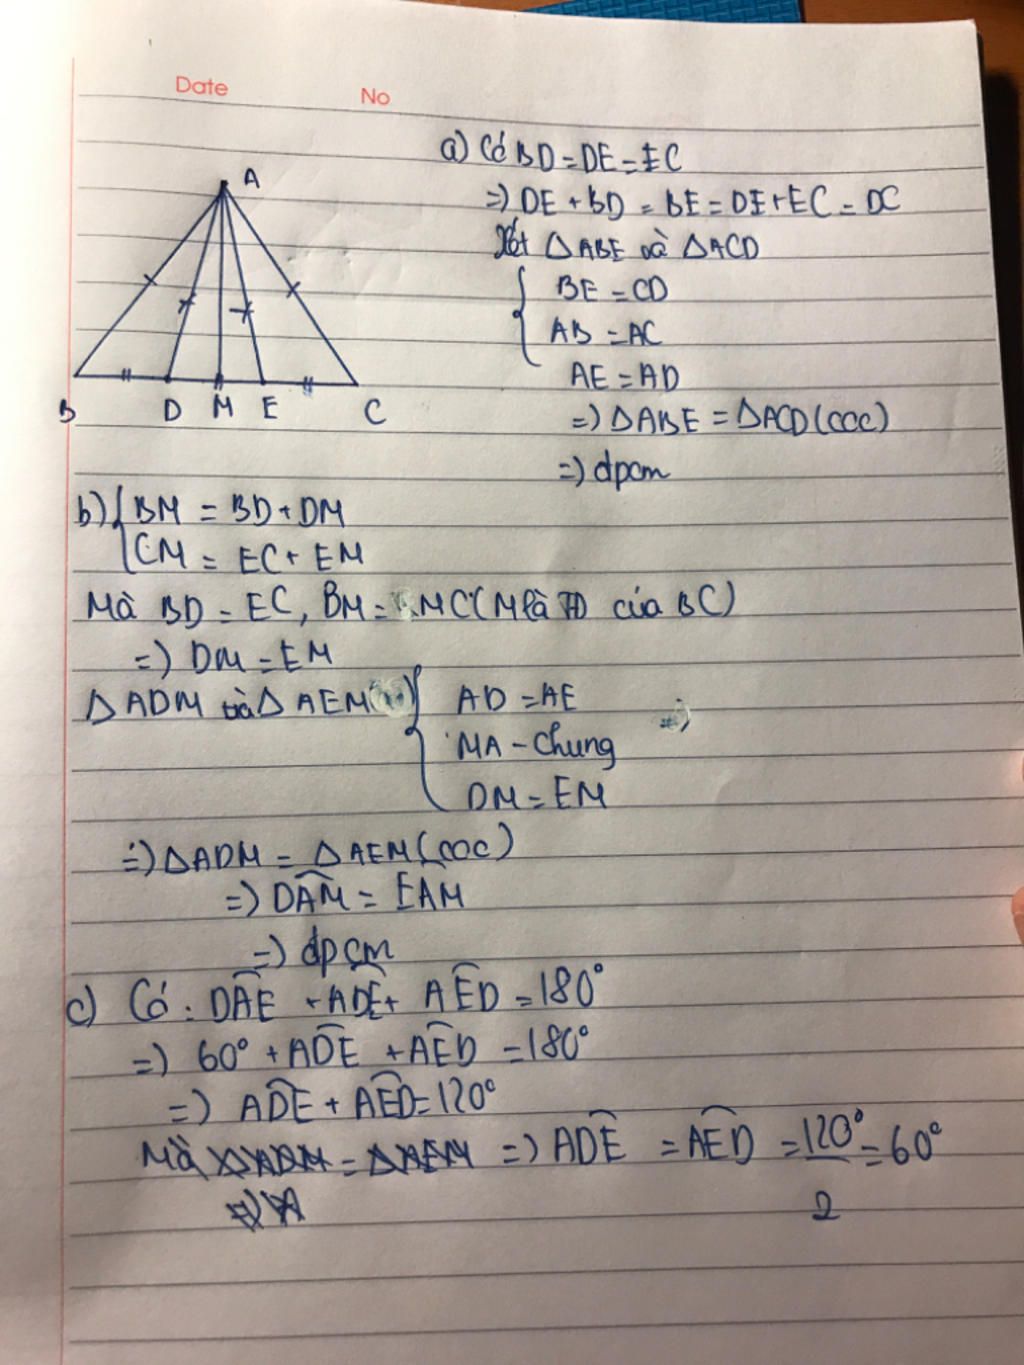 Date No
A
B D M E C
a) Có BD = DE = EC
=) DE + BD = BE = DE + EC = DC
Xét △ABE và △ACD
BE = CD
AB = AC
AE = AD
=) △ABE = △ACD (ccc)
=) dpcm
b) { BM = BD + DM
CM = EC + EM
Mà BD = EC, BM = MC (M là TĐ của BC)
=) DM = EM
△ADM và △AEM { AD = AE =)
MA - Chung
DM = EM
=) △ADM = △AEM (ccc)
=) DAM = EAM
=) dpcm
c) Có : DAE + ADE + AED = 180°
=) 60° + ADE + AED = 180°
=) ADE + AED = 120°
Mà △ADM = △AEM =) ADE = AED = 120°/2 = 60°
=) A